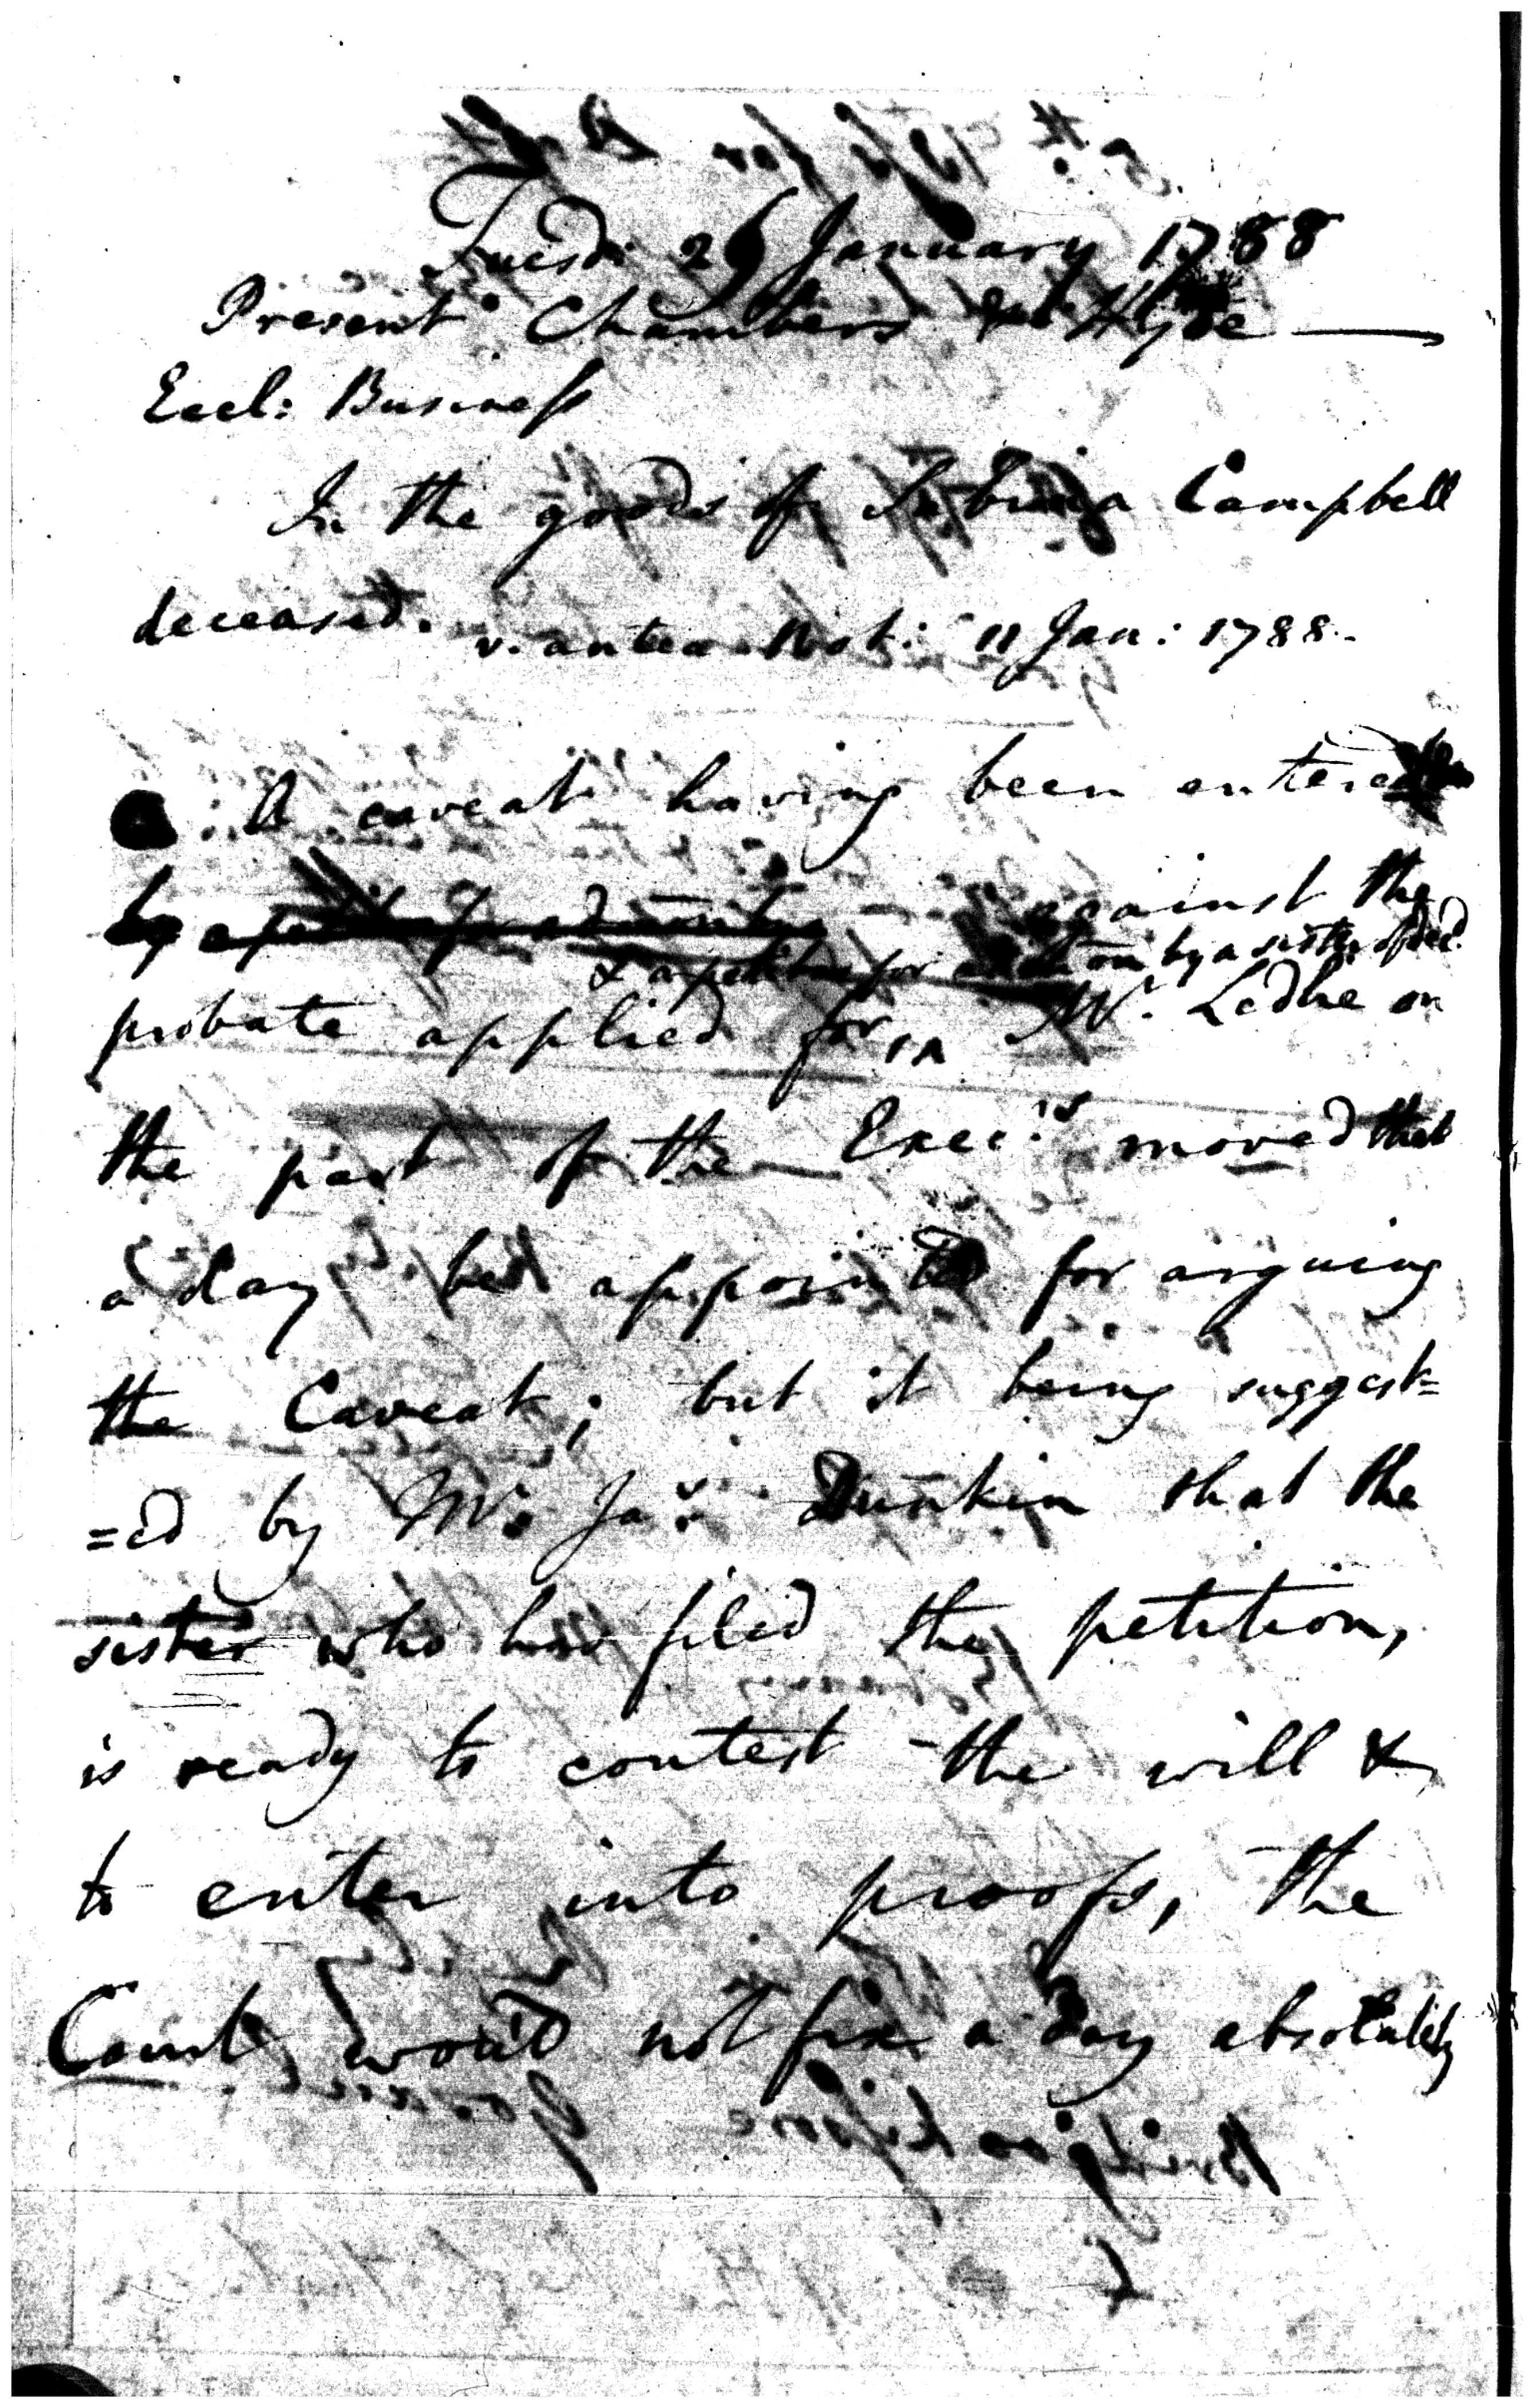 Tuesd: 29 January 1788
Present Chambers & Hyde
Eccl: Business
In the goods of Sabrina Campbell
deceased. v. antea Not: 11 Jan: 1788.
A caveat having been entered
by a petition for against the
& a petition for by a sister of dec.d
probate applied for, Mr. Ledlie on
the part of the Exec.rs moved that
a day be appointed for arguing
the Caveat; but it being suggest=
=ed by Mr. Jas. Dunkin that the
sister who has filed the petition,
is ready to contest the will &
to enter into proofs, the
Court wou'd not fix a day absolutely